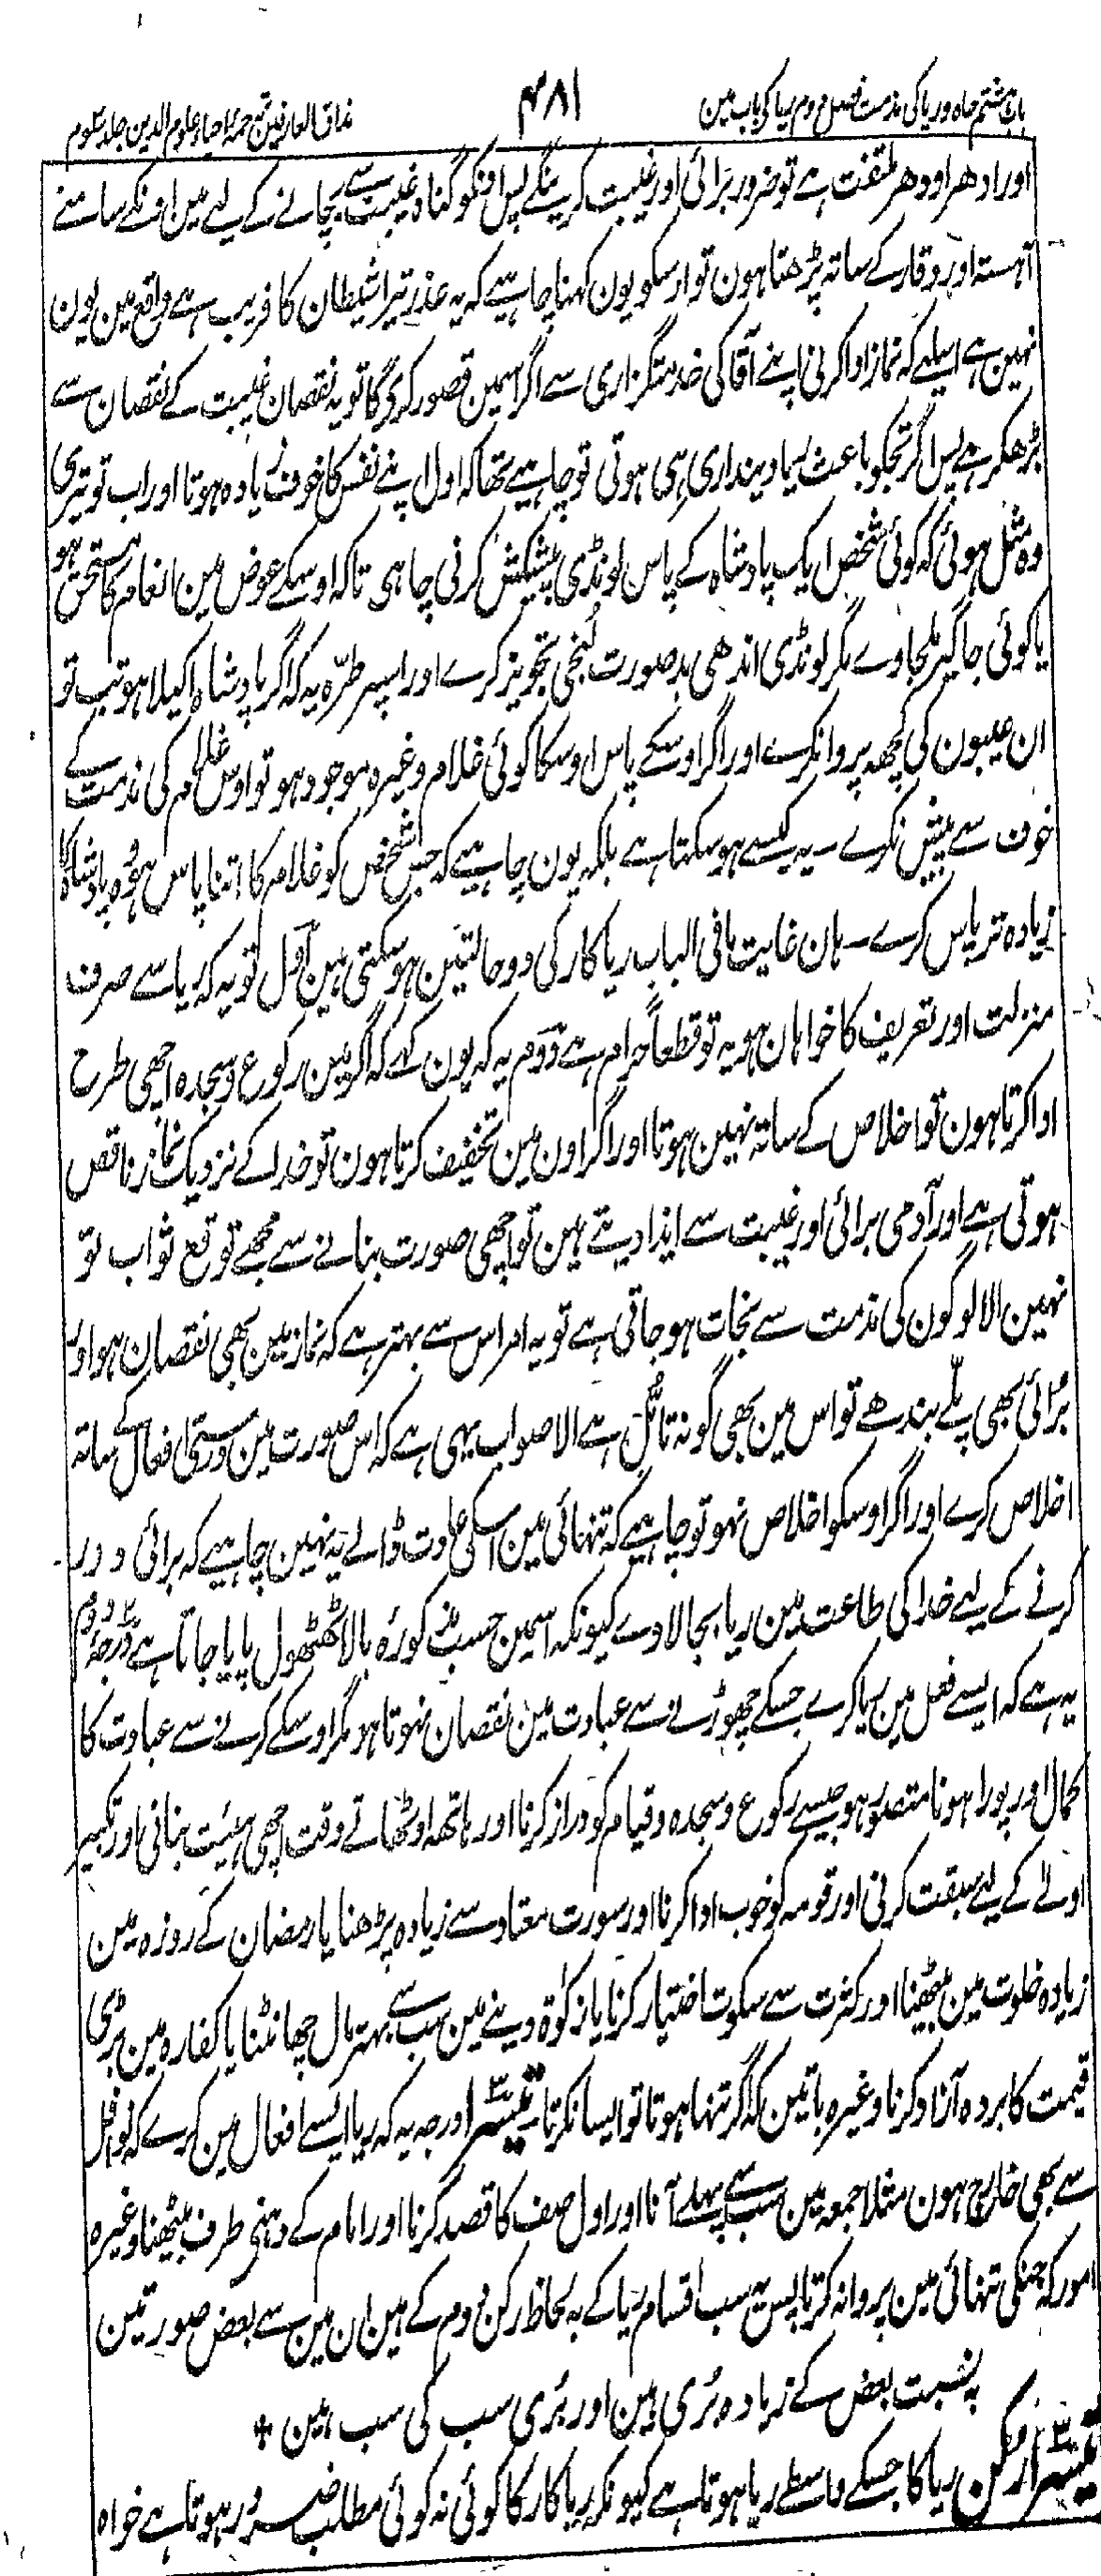 باب ہشتم جاہ و ریا کی مذمت فصل دوم ریا کی باب مین
۴۸۱
مذاق العارفین ترجمۂ احیاء علوم الدین جلد سوم
اور ادھر اودھر ملتفت ہے تو ضرور برائی اور غیبت کرینگے پس اونکو گناہ غیبت سے بچانے کے لیے مین اونکے سامنے
آہستہ اور وقار کے ساتہ پڑھتا ہون تو اوسکو یون کہنا چاہیے کہ یہ عذر تیرا شیطان کا فریب ہے واقع مین یون
نہین ہے اسلیے کہ نماز ادا کرنی اپنے آقا کی خدمتگزاری ہے اگر اسمین قصور کریگا تو یہ نقصان غیبت کے نقصان سے
بڑھکر ہے پس اگر تجکو باعث ریا دینداری ہی ہوتی تو چاہیے تھا کہ اول اپنے نفس کا خوف زیادہ ہوتا اور اب تو تیری
وہ مثل ہوئی کہ کوئی شخص ایک بادشاہ کے پاس لونڈی پیشکش کرنی چاہی تاکہ اوسکے عوض مین انعام کا مستحق ہو
یا کوئی جاگیر ملجاوے مگر لونڈی اندھی بدصورت لنجی تجویز کرے اور اسپر طرّہ یہ کہ اگر بادشاہ اکیلا ہو تب تو
ان عیبون کی کچھہ پروا نکرے اور اگر اوسکے پاس اوسکا کوئی غلام وغیرہ موجود ہو تو اوس غلام کی مذمت کے
خوف سے پیش نکرے ۔ یہ کیسے ہوسکتا ہے بلکہ یون چاہیے کہ جس شخص کو غلام کا اتنا پاس ہو وہ بادشاہ کا
زیادہ تر پاس کرے ۔ ہان غایت مافی الباب ریاکار کی دو حالتین ہوسکتی ہین اوّل تو یہ کہ ریا سے صرف
منزلت اور تعریف کا خواہان ہو یہ تو قطعاً حرام ہے دوّم یہ کہ یون کہے کہ اگر مین رکوع و سجدہ اچھی طرح
ادا کرتا ہون تو اخلاص کے ساتہ نہین ہوتا اور اگر اون مین تخفیف کرتا ہون تو خدا کے نزدیک نماز ناقص
ہوتی ہے اور آدمی برائی اور غیبت سے ایذا دیتے ہین تو اچھی صورت بنانے سے مجھے توقع ثواب تو
نہین الا لوگون کی مذمت سے نجات ہوجاتی ہے تو یہ امر اس سے بہتر ہے کہ نماز مین بھی نقصان ہو اور
بُرائی بھی پلّے بندھے تو اس مین بھی گونہ تامّل ہے الا صواب یہی ہے کہ اس صورت مین درستی افعال کے ساتہ
اخلاص کرے اور اگر اوسکو اخلاص نہو تو چاہیے کہ تنہائی مین اسکی عادت ڈالے یہ نہین چاہیے کہ برائی دور
کرنے کے لیے خدا کی طاعت مین ریا بجالاوے کیونکہ اسمین حسب مذکورہ بالا ٹھٹھول پایا جاتا ہے درجۂ دوم
یہ ہے کہ ایسے فعل مین ریا کرے جسکے چھوڑنے سے عبادت مین نقصان نہوتا ہو مگر اوسکے کرنے سے عبادت کا
کمال اور پورا ہونا متصور ہو جیسے رکوع و سجدہ و قیام کو دراز کرنا اور ہاتھہ اوٹھاتے وقت اچھی ہیئت بنانی اور تکبیر
اولےٰ کے لیے سبقت کرنی اور قومہ کو خوب ادا کرنا اور سورت معتاد سے زیادہ پڑھنا یا رمضان کے روزہ مین
زیادہ خلوت مین بیٹھنا اور کثرت سے سکوت اختیار کرنا یا زکوٰۃ دینے مین سب سے بہتر مال چھانٹنا یا کفارہ مین بڑی
قیمت کا بردہ آزاد کرنا وغیرہ باتین کہ اگر تنہا ہوتا تو ایسا نکرتا تیسرا درجہ یہ کہ ریا ایسے افعال مین کرے کہ نوافل
سے بھی خارج ہون مثلا جمعہ مین سب سے پہلے آنا اور اول صف کا قصد کرنا اور امام کے دہنی طرف بیٹھنا وغیرہ
امور کہ جنکی تنہائی مین پروا نہ کرتا پس یہ سب اقسام ریا کے بہ لحاظ رکن دوم کے ہین ان مین سے بعض صورتین
بنسبت بعض کے زیادہ بُری ہین اور بُری سب کی سب ہین +
تیسرا رکن ریا کا جسکے واسطے ریا ہوتا ہے کیونکہ ریاکار کا کوئی نہ کوئی مطلب ضرور ہوتا ہے خواہ